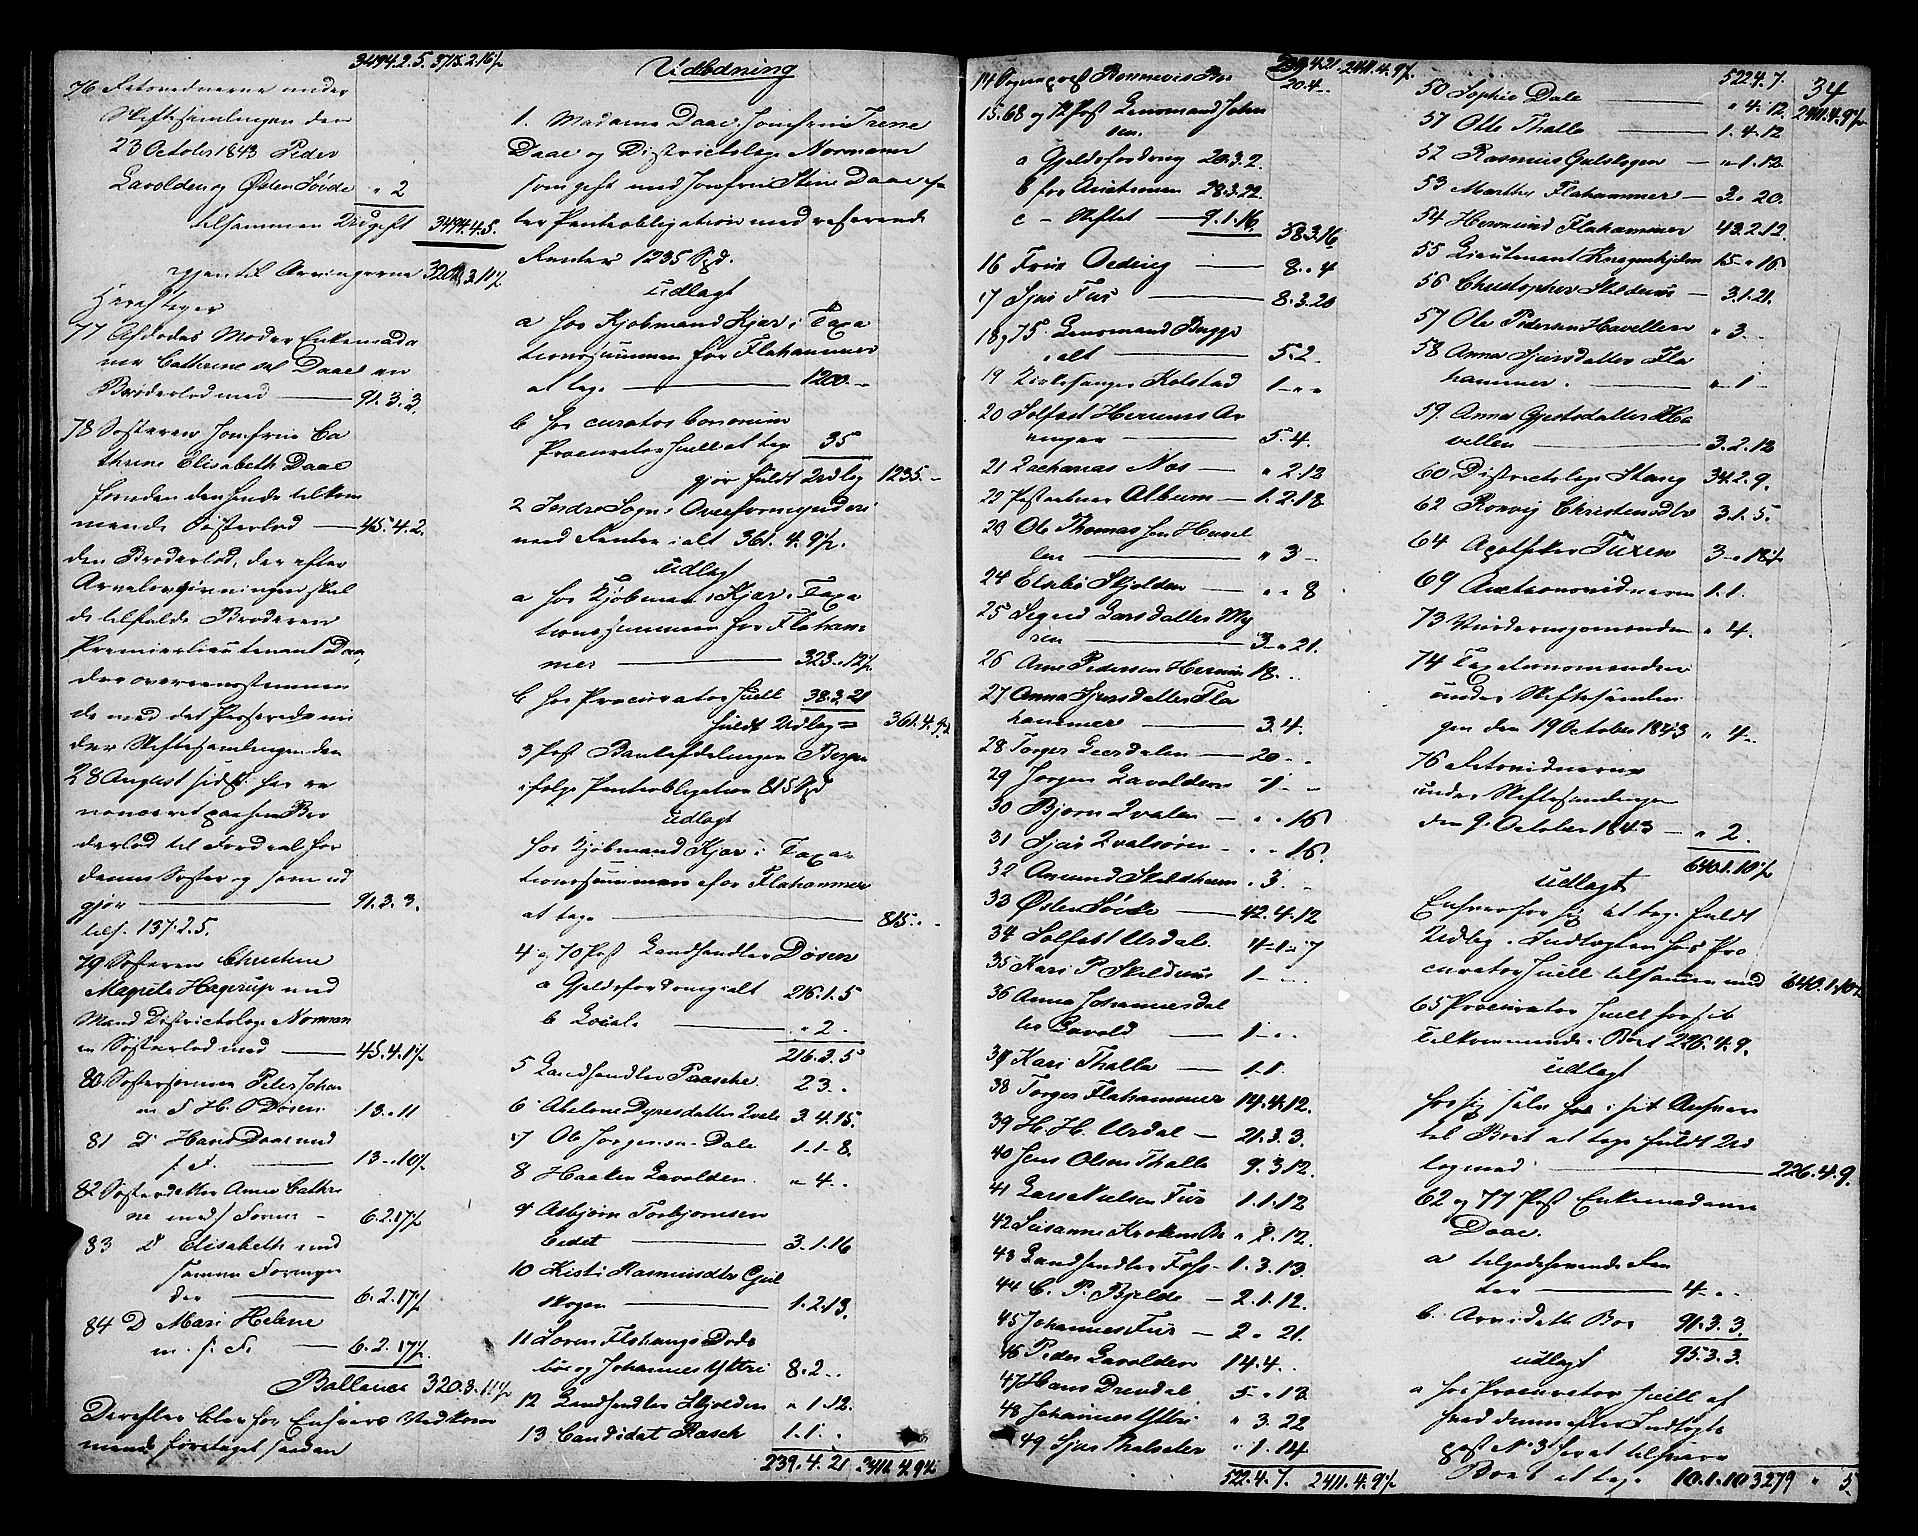 3494.2.5. 3715.2.16½
76 Retsvidnerne under
Skiftesamlingen den
23 October 1843 Peder
Lavolden og Østen Søvde " 2
tilsammen Udgift 3494.4.5.
igjen til Arvingerne 320.3.11½
Heraf tages
77 Afdødes Moder Enkemada
me Cathrine sal Daaes en
Broderlod med 91.3.3.
78 Søsteren Jomfrue Ca
thrine Elisabeth Daae
foruden den hende tilkom
mende Søsterlod 45.4.2.
den Broderlod, der efter
Arvelovgivningen skul
de tilfalde Broderen
Premierlieutenant Daae,
der overeensstemmen
de med det Passerede un
der Skiftesamlingen den
28 August sidst har re
nonceret paa sin Bro
derlod til Fordeel for
denne Søster og som ud
gjør 91.3.3.
tils. 137.2.5.
79 Søsteren Christine
Magrete Hagerup med
Mand Districtslæge Norman
n Søsterlod med 45.4.1½
80 Søstersønnen Peter Johan
m F H. O Døsen 13.. 11
81 D Hans Daae med
s. F. 13..10½
82 Søsterdatter Anne Cathri
ne med s Form 6.2.17½
83 D Elisabeth med
samme Formyn
der 6.2.17½
84 D Mari Helene
m. s. F. 6.2.17½
Ballance 320.3.11½
Derefter blev for Enhvers Vedkom
mende foretaget saadan
Udlodning
1. Madame Daae, Jomfrue Trine
Daae og Districtslæge Normann
som gift med Jomfru Stine Daae ef
ter Panteobligation med resterende
Renter 1235 Spd.
udlagt
a hos Kjøbmand Kjær i Taxa
tionssummen for Flahammer
at tage 1200..
b hos curator bonorum
Procurator Juell at tage 35
gjør fuldt Udlæg 1235.
2 Indre Sogns Overformynderi
med Renter i alt 361.4.9½.
udlagt
a hos Kjøbmand Kjær i Taxa
tionssummen for Flaham
mer 323..12½
b hos Procurator Juell 38.3.21
fuldt Udlæg 361.4.9½
3 Post Bankafdelingen i Bergen
ifølge Panteobligation 815 Spd
udlagt
hos Kjøbmand Kjær i Taxa
tionssummen for Flahammer
at tage 815..
4 og 70 Post Landhandler Døsen
a Gjeldsfordring i alt 216.1.5
b Locale " 2
216.3.5
5 Landhandler Paasche 23..
6 Abelone Dyresdatter Qvale 3.4.15.
7 Ole Jørgensen Dale 1.1.8.
8 Haaken Lavolden " 4..
9 Asbjørn Torbjørnsen
Eedet 3.1.16
10 Kisti Rasmusdtr Gjul
skogen 1.2.13.
11 Søren Flahaugs Døds
boe og Johannes Yttri 8.2..
12 Landhandler Skjolden " 1.12.
13 Candidat Rasch 1.1..
239.4.21 2411.4.9½
239.4.21. 2411.4.9½
14 Sogneprest Rennevis Bo 20.4..
15. 68 og 72 Post Lensmand John
sen.
a Gjeldsfordring 20.3.2.
b for Auctionen 28.3.22.
c - Skiftet 9.1.16.
58.3.16
16 Friis Oeding 8.. 4
17 Sjur Fuur 8.3.20
18 og 75. Lensmand Bugge
i alt 5.2.
19 Kirkesanger Kolstad 1 " "
20 Solfest Herrems Ar
vinger 5.4.
21 Zacharias Næs " 2.12
22 Postaabner Album 1.2.18
23 Ole Thomassen Havel
len " 3
24 Elsebe Skjolden " " 8
25 Sigrid Larsdatter My
ren 3 " 21.
26 Arne Pedersen Herrem 18..
27 Anna Sjursdatter Fla
hammer 3.4.
28 Torger Leerdalen 20..
29 Jørgen Lavolden 1..
30 Bjørn Qvalen " " 16
31 Sjur Qvalsøren " " 16.
32 Amund Skildheim " 3.
33 Østen Søvde 42.4.12
34 Solfest Urdal. 4.1.17
35 Kari P Skildum 1...
36 Anna Johannesdat
ter Lavold 1..
37 Kari Thalle 1.1.
38 Torger Flahammer 14.4.12.
39 H. H. Urdal 21.3.3.
40 Jens Olsen Thalle 9.3.12.
41 Lars Nielsen Fur 1.1.12
42 Susanne Kroken Bo " 2.12.
43 Landhandler Foss 1.3.13.
44 C. P. Bjelde 2.1.12.
45 Johannes Fur 2 " 21.
46 Peder Lavolden 14.4..
47 Hans Drevdal 5 " 13
48 Johannes Yttri " 3.22
49 Sjur Thalsete " 1.14
522.4.7. 2411.4.9½
522.4.7. 34
2411.4.9½
50 Sophie Dale " 4.12.
51 Otte Thalle 1.4.12
52 Rasmus Gulskogen " 1.12
53 Marthe Flahammer 3 " 20.
54 Hermund Flahammer 43.2.12.
55 Lieutenant Knagenhjelm 15 " 16
56 Christopher Skildum 3.1.21.
57 Ole Pedersen Havellen " 3..
58 Anna Sjursdatter Fla
hammer. " 1
59. Anna Gjertsdatter Ha
vellen 3.2.12
60 Districtslæge Stang 34.2.9.
62 Ronvig Christensdtr 3.1.5.
64 Apotheker Tuxen 3 " 18½
69 Auctionsvidnerne 1.1.
73 Vurderingsmænden " 4.
74 Taxationsmænden
under Skiftesamlin
gen den 19 October 1843 " 4..
76 Retsvidnerne
under Skiftesamlingen
den 9. October 1843 " 2.
640.1.10½
udlagt
Enhver for sig at tage fuldt
Udlæg i Indtægten hos Pro
curator Juell tilsammen med 640.1.10½
65 Procurator Juell for sit
Tilkommende i Boet 226.4.9.
udlagt
hos sig selv for i sit Ansvar
til Boet at tage fuldt Ud
læg med 226.4.9.
62 og 77 Post Enkemadame
Daae.
a tilgodehavende Ren
ter 4..
b. Arvidette Boe 91.3.3.
udlagt 95.3.3.
a hos Procurator Juell af
hvad denne efter Indtægts
post N 3 svarer
Boet at tage 10.1.10 3279 " 5.